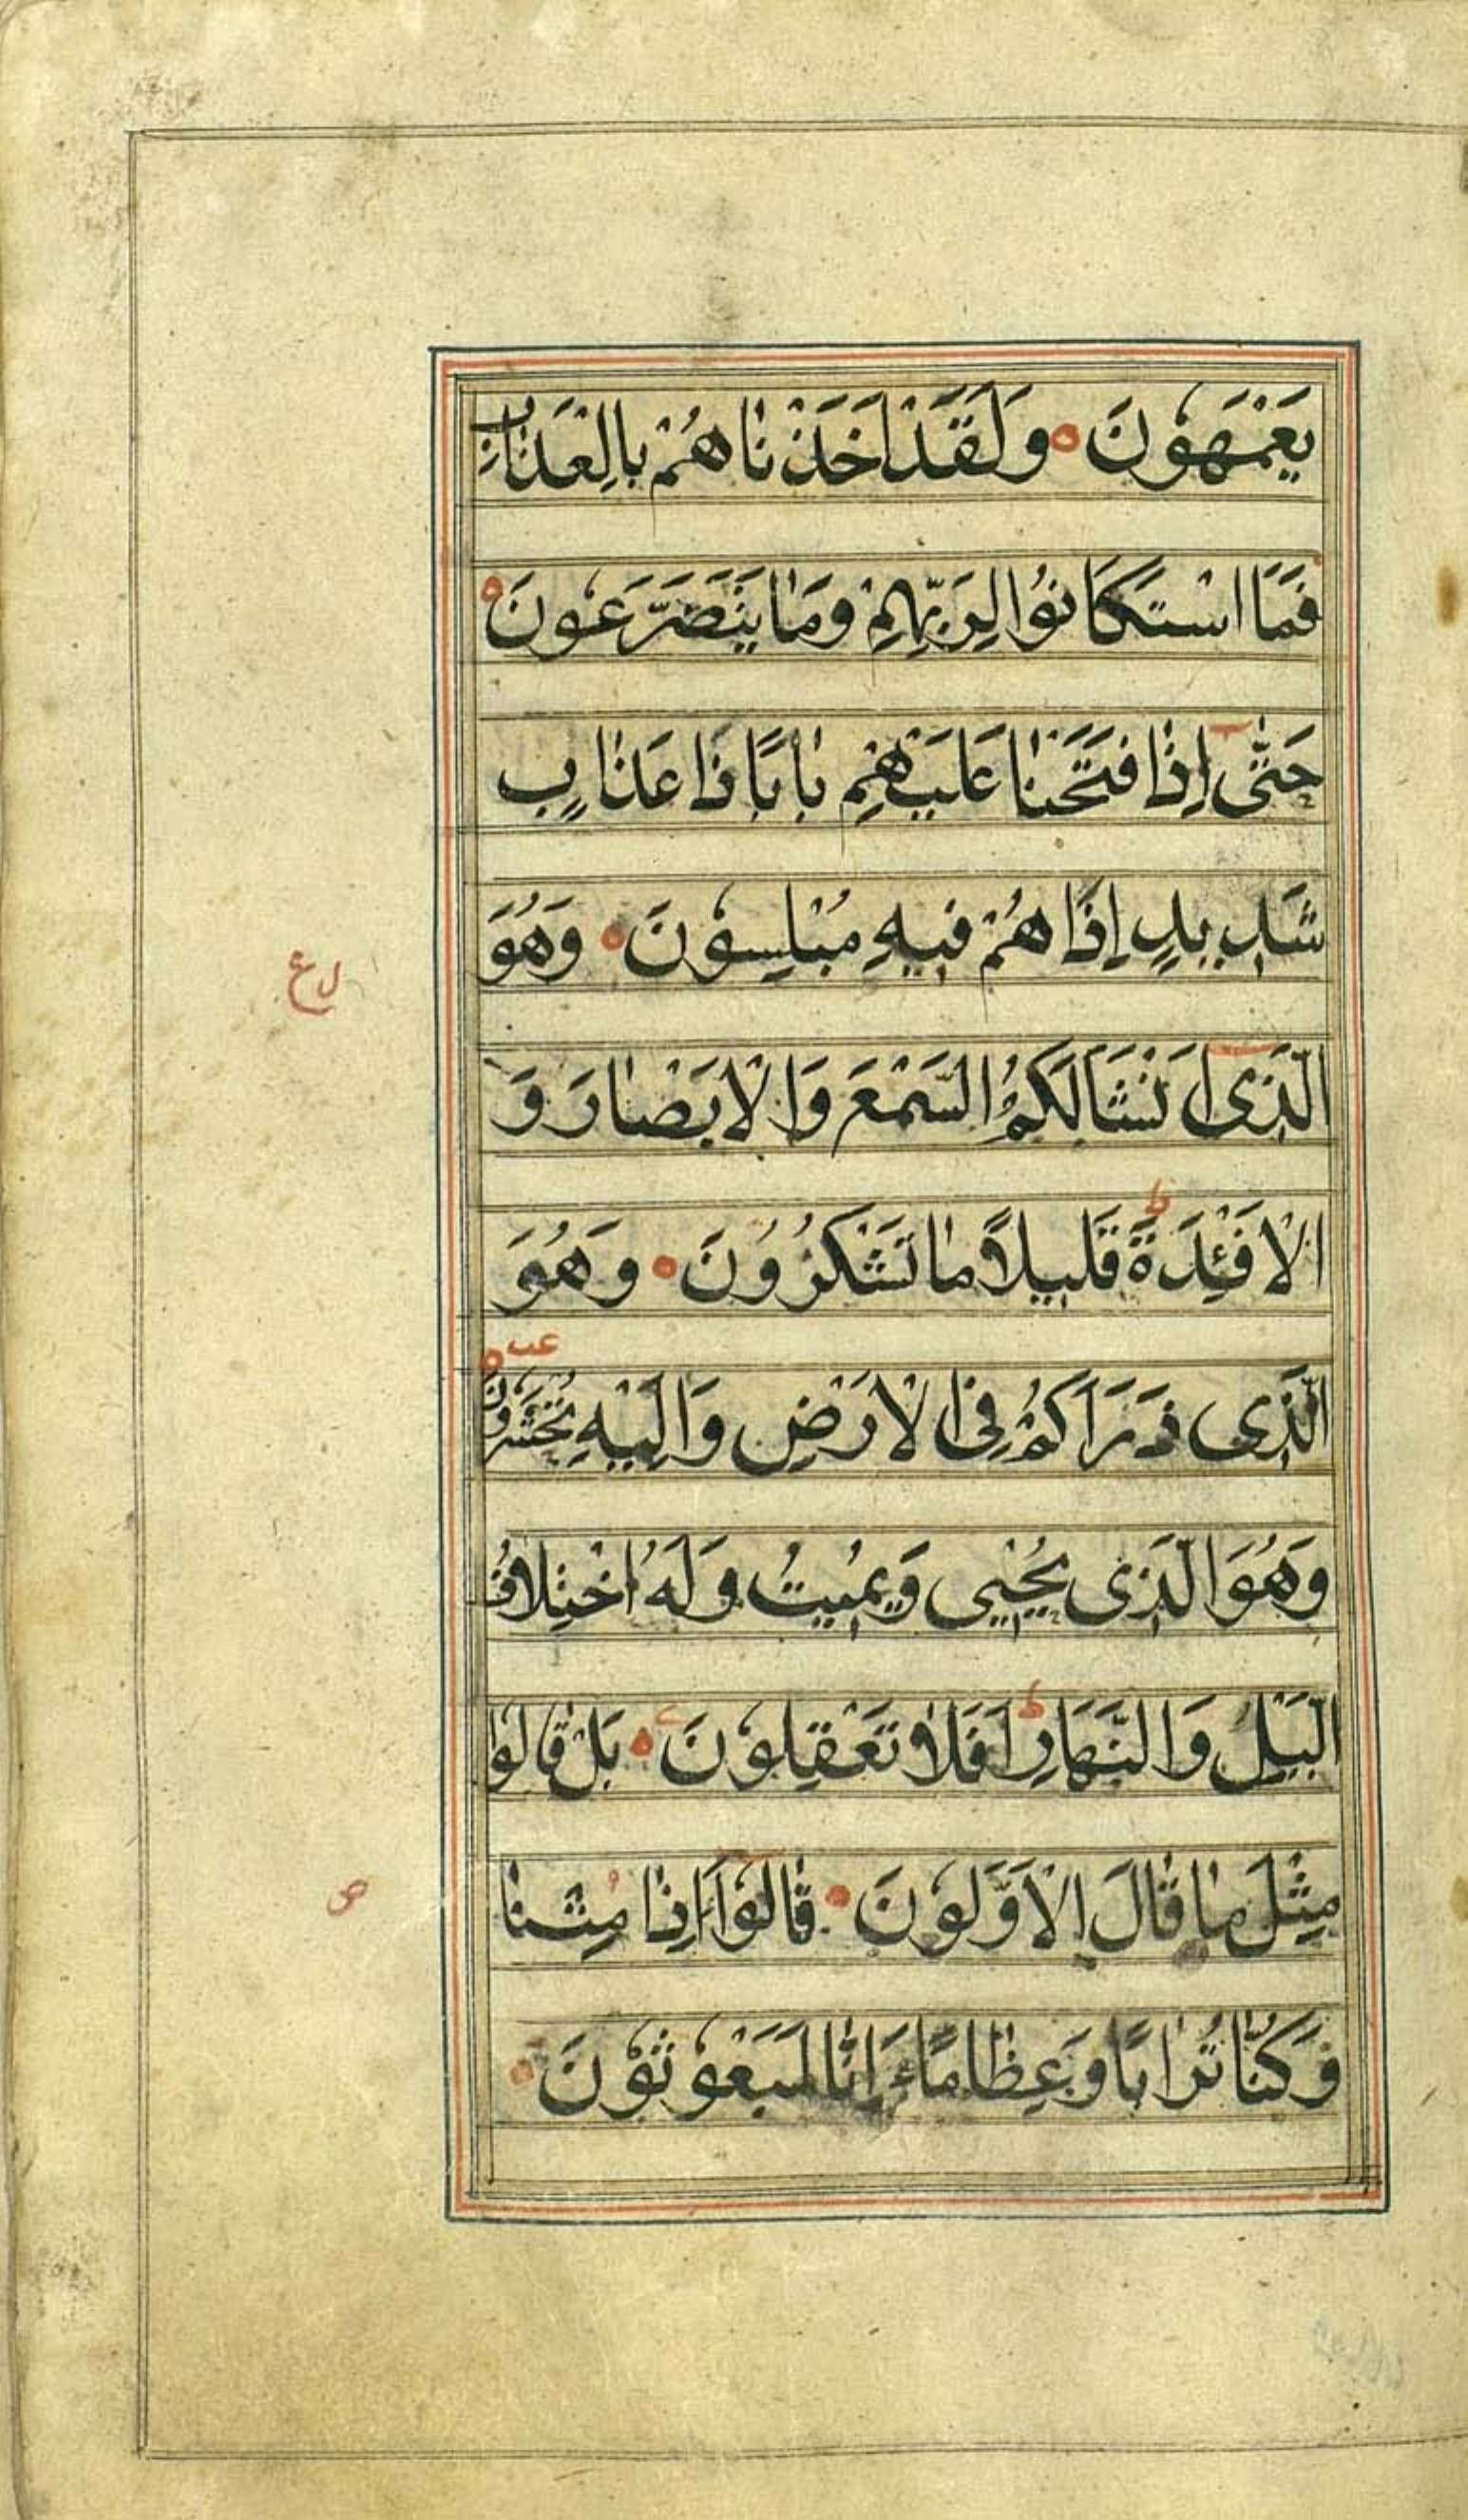 يَعْمَهُونَ ه وَلَقَدْ اَخَذْنَاهُمْ بِالْعَذَابِ
فَمَا اسْتَكَانُوا لِرَبِّهِمْ وَمَا يَتَضَرَّعُونَ ه
حَتّٰى اِذَا فَتَحْنَا عَلَيْهِمْ بَابًا ذَا عَذَابٍ
شَدِيدٍ اِذَا هُمْ فِيهِ مُبْلِسُونَ ه وَهُوَ
الَّذِى اَنْشَاَ لَكُمُ السَّمْعَ وَالْاَبْصَارَ وَ
الْاَفْئِدَةَ ط قَلِيلًا مَا تَشْكُرُونَ ه وَهُوَ
الَّذِى ذَرَاَكُمْ فِى الْاَرْضِ وَاِلَيْهِ تُحْشَرُونَ ه عب
وَهُوَ الَّذِى يُحْيِى وَيُمِيتُ وَلَهُ اخْتِلَافُ
الَّيْلِ وَالنَّهَارِ ط اَفَلَا تَعْقِلُونَ ه بَلْ قَالُوا
مِثْلَ مَا قَالَ الْاَوَّلُونَ ه قَالُوا ءَاِذَا مِتْنَا
وَكُنَّا تُرَابًا وَعِظَامًا ءَاِنَّا لَمَبْعُوثُونَ ه